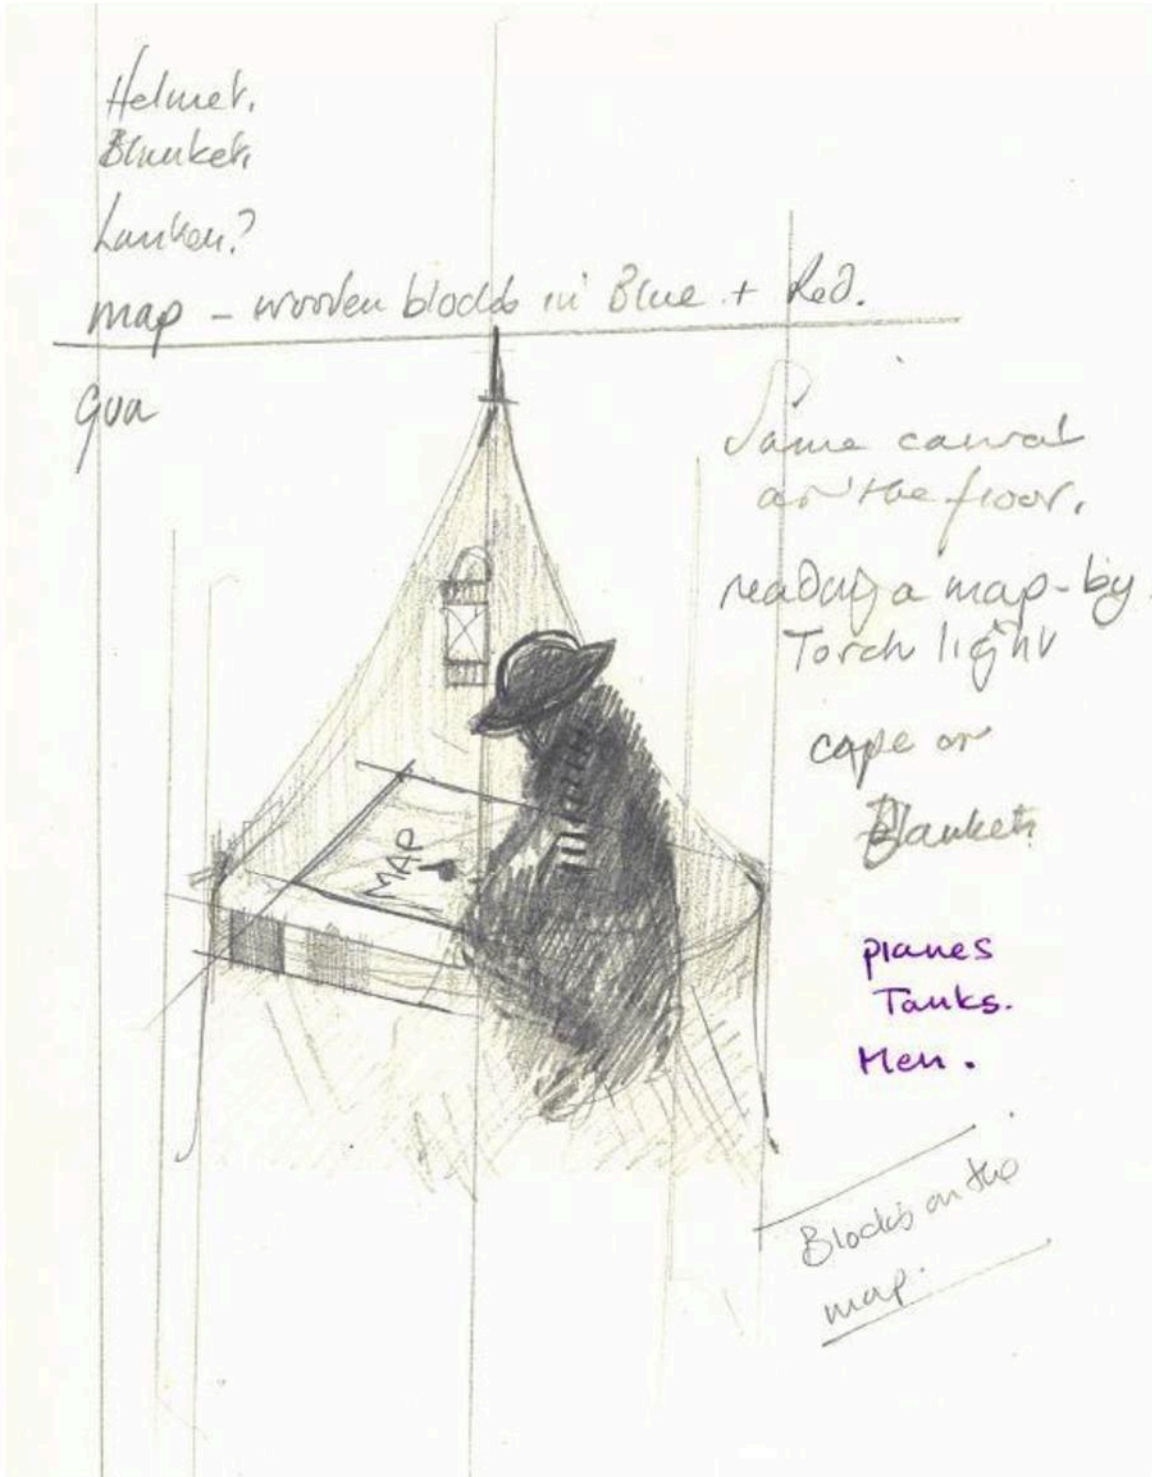 Helmet.
Blanket.
Lanken?
map - wooden blocks in Blue + Red.
Gun
Same
on the floor.
reading a map - by
Torch light
cape or
Blanket
MAP
planes
Tanks.
Men.
Blocks on the
map.